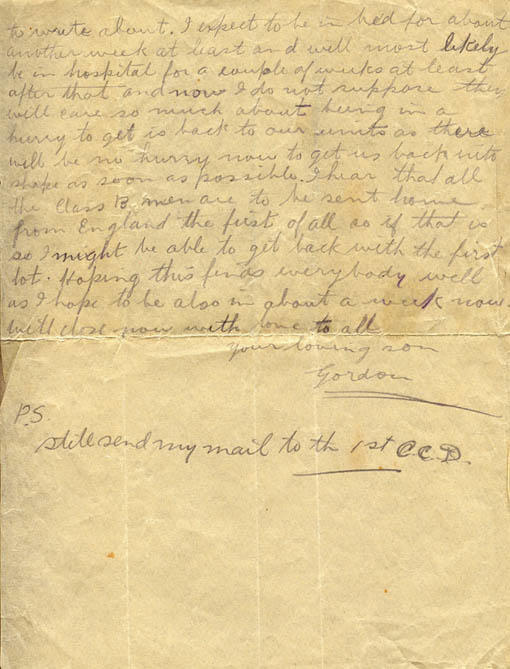 to write about. I expect to be in bed for about
another week at least and will most likely
be in hospital for a couple of weeks at least
after that and now I do not suppose they
will care so much about being in a
hurry to get is back to our units as there
will be no hurry now to get us back into
shape as soon as possible. I hear that all
the Class B men are to be sent home
from England the first of all so if that is
so I might be able to get back with the first
lot. Hoping this finds everybody well
as I hope to be also in about a week now.
Will close now with love to all
Your loving son
Gordon
P.S.
Still send my mail to th 1st C.C.D.